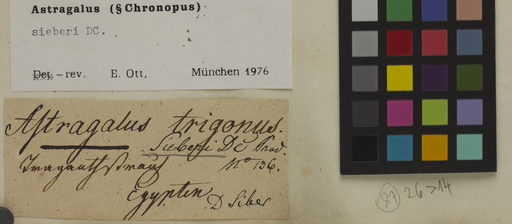 Astragalus (§ Chronopus)
sieberi DC.
Det. – rev. E. Ott, München 1976
Astragalus trigonus.
Sieberi DC
Traganthstrauch No 136.
Egypten
D Siber
87 26>14